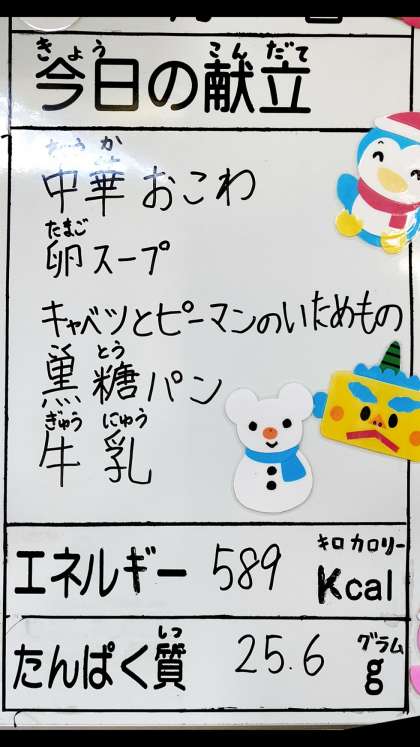 きょう こんだて
今日の献立
ちゅうか
中華おこわ
たまご
卵スープ
キャベツとピーマンのいためもの
とう
黒糖パン
ぎゅう にゅう
牛乳
キロカロリー
エネルギー 589 Kcal
しつ グラム
たんぱく質 25.6 g